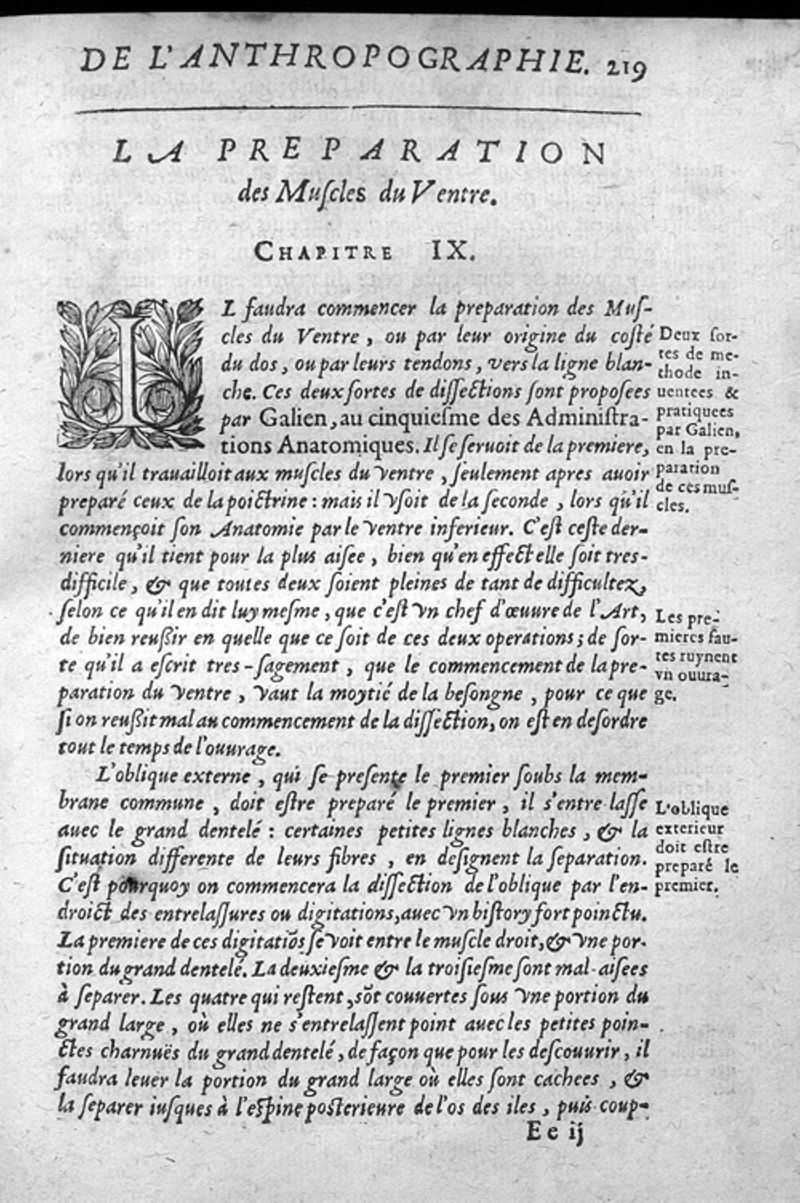 DE L'ANTHROPOGRAPHIE. 219
LA PREPARATION
des Muſcles du Ventre.
CHAPITRE IX.
IL faudra commencer la preparation des Muſ-
cles du Ventre, ou par leur origine du coſté
du dos, ou par leurs tendons, vers la ligne blan-
che. Ces deux ſortes de diſſections ſont propoſees
par Galien, au cinquieſme des Adminiſtra-
tions Anatomiques. Il ſe ſeruoit de la premiere,
lors qu'il trauailloit aux muſcles du ventre, ſeulement apres auoir
preparé ceux de la poictrine : mais il vſoit de la ſeconde, lors qu'il
commençoit ſon Anatomie par le ventre inferieur. C'eſt ceſte der-
niere qu'il tient pour la plus aiſee, bien qu'en effect elle ſoit tres-
difficile, & que toutes deux ſoient pleines de tant de difficultez,
ſelon ce qu'il en dit luy meſme, que c'eſt vn chef d'œuure de l'Art,
de bien reuſſir en quelle que ce ſoit de ces deux operations; de ſor-
te qu'il a eſcrit tres-ſagement, que le commencement de la pre-
paration du ventre, vaut la moytié de la beſongne, pour ce que
ſi on reuſſit mal au commencement de la diſſection, on eſt en deſordre
tout le temps de l'ouurage.
Deux ſor-
tes de me-
thode in-
uentees &
pratiquees
par Galien,
en la pre-
paration
de ces muſ-
cles.
Les pre-
mieres fau-
tes ruynent
vn ouura-
ge.
L'oblique externe, qui ſe preſente le premier ſoubs la mem-
brane commune, doit eſtre preparé le premier, il s'entre laſſe
auec le grand dentelé : certaines petites lignes blanches, & la
ſituation differente de leurs fibres, en deſignent la ſeparation.
C'eſt pourquoy on commencera la diſſection de l'oblique par l'en-
droict des entrelaſſures ou digitations, auec vn biſtory fort poinctu.
La premiere de ces digitatiõs ſe voit entre le muſcle droit, & vne por-
tion du grand dentelé. La deuxieſme & la troiſieſme ſont mal-aiſees
à ſeparer. Les quatre qui reſtent, sõt couuertes ſous vne portion du
grand large, où elles ne s'entrelaſſent point auec les petites poin-
ctes charnuës du grand dentelé, de façon que pour les deſcouurir, il
faudra leuer la portion du grand large où elles ſont cachees, &
la ſeparer iuſques à l'eſpine poſterieure de l'os des iles, puis coup-
L'oblique
exterieur
doit eſtre
preparé le
premier.
E e ij